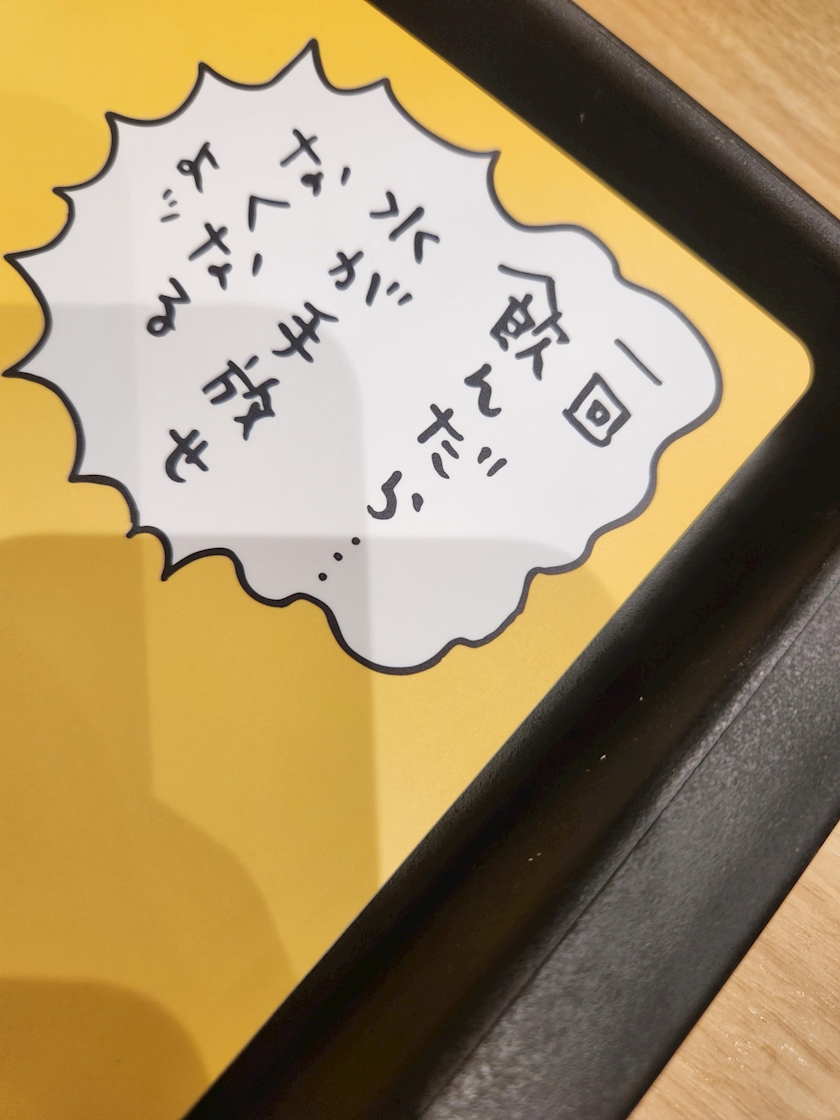 一回
飲んだら…
水が手放せ
なくなる
よ〃